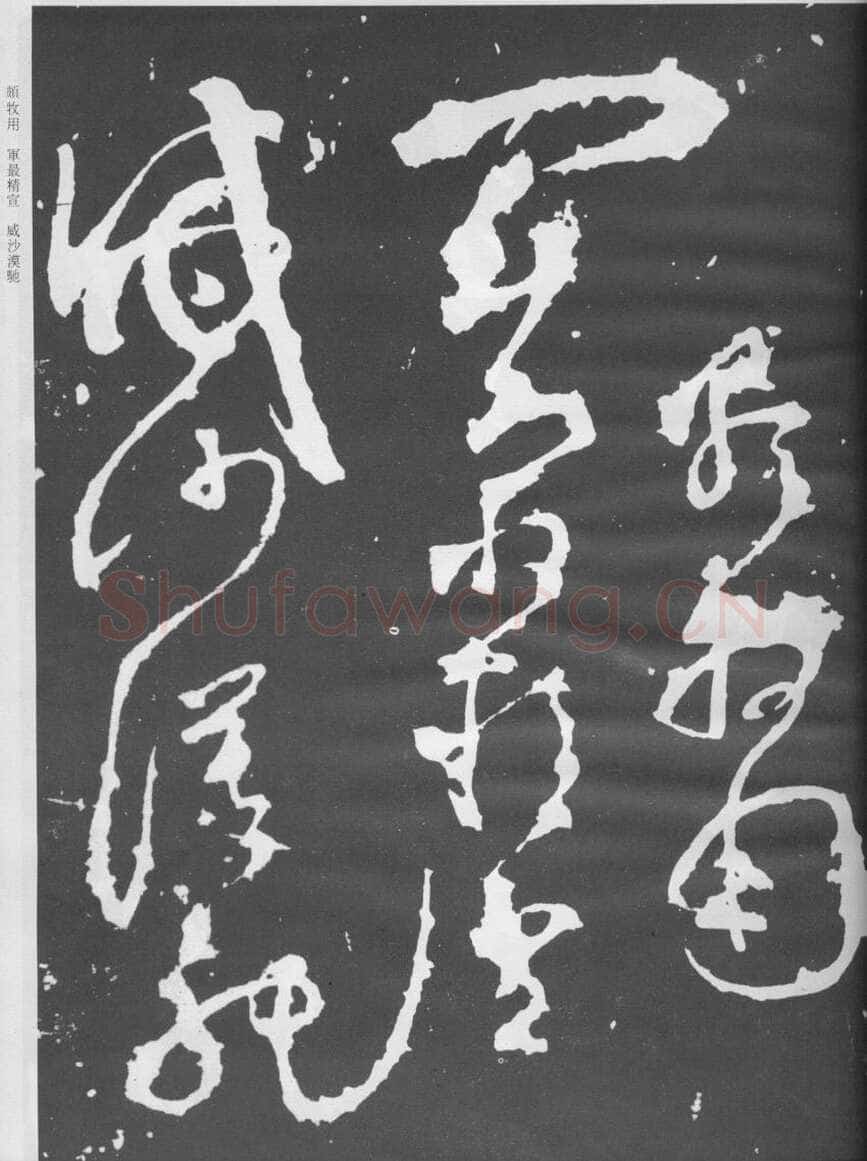 頗牧用
軍最精宣
威沙漠馳
頗牧用 軍最精宣 威沙漠馳
Shufawang.CN